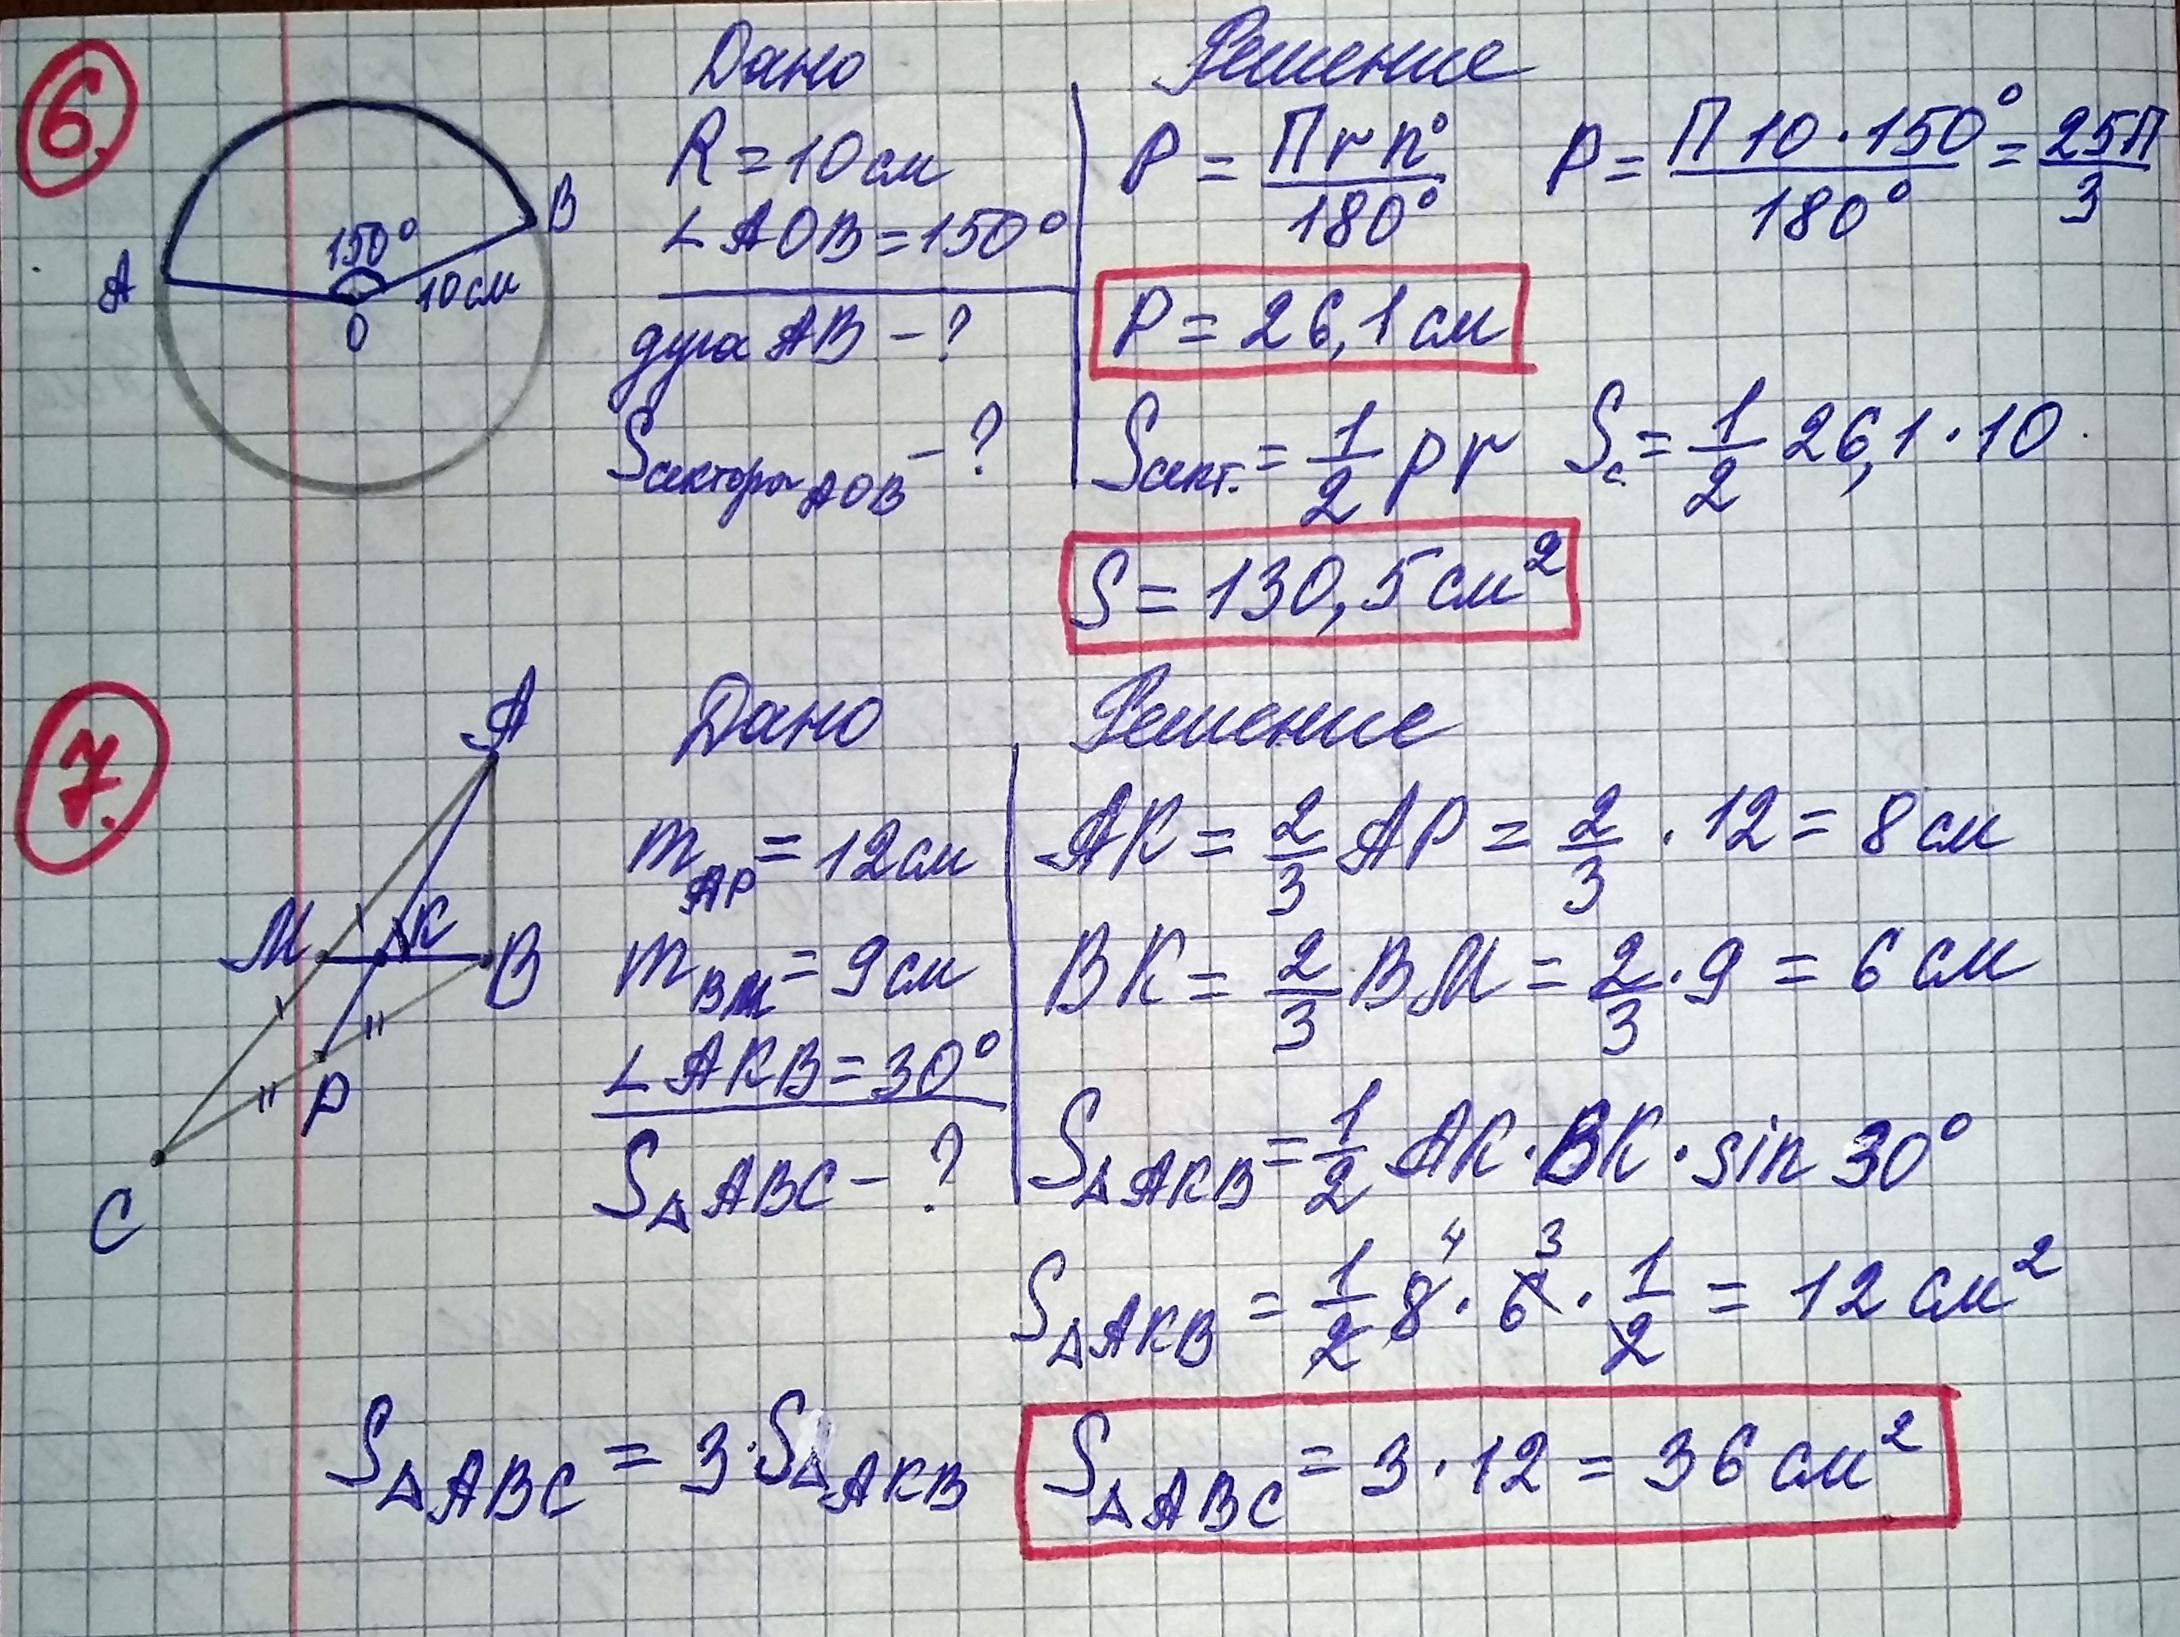 6.
A
B
150°
10см
O
Дано
R = 10 см
∠AOB = 150°
дуга AB - ?
Sсектора AOB - ?
Решение
P = Пrn°/180° P = П10·150°/180° = 25П/3
P = 26,1 см
Sсект. = 1/2 pr Sс = 1/2 26,1·10
S = 130,5 см²
7.
A
M
K
B
P
C
Дано
mAP = 12 см
mBM = 9 см
∠AKB = 30°
S△ABC - ?
Решение
AK = 2/3 AP = 2/3 · 12 = 8 см
BK = 2/3 BM = 2/3 · 9 = 6 см
S△AKB = 1/2 AK·BK·sin 30°
4 3
S△AKB = 1/2 8·6·1/2 = 12 см²
S△ABC = 3·S△AKB S△ABC = 3·12 = 36 см²